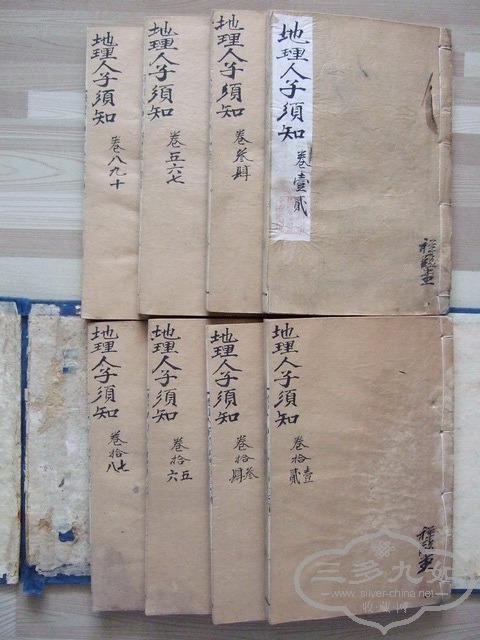 地理人子須知
卷壹貳
地理人子須知
卷叁肆
地理人子須知
卷五六七
地理人子須知
卷八九十
地理人子須知
卷拾壹
貳
地理人子須知
卷拾叁
肆
地理人子須知
卷拾五
六
地理人子須知
卷拾七
八
三多九如
www.silver-china.net
收藏网